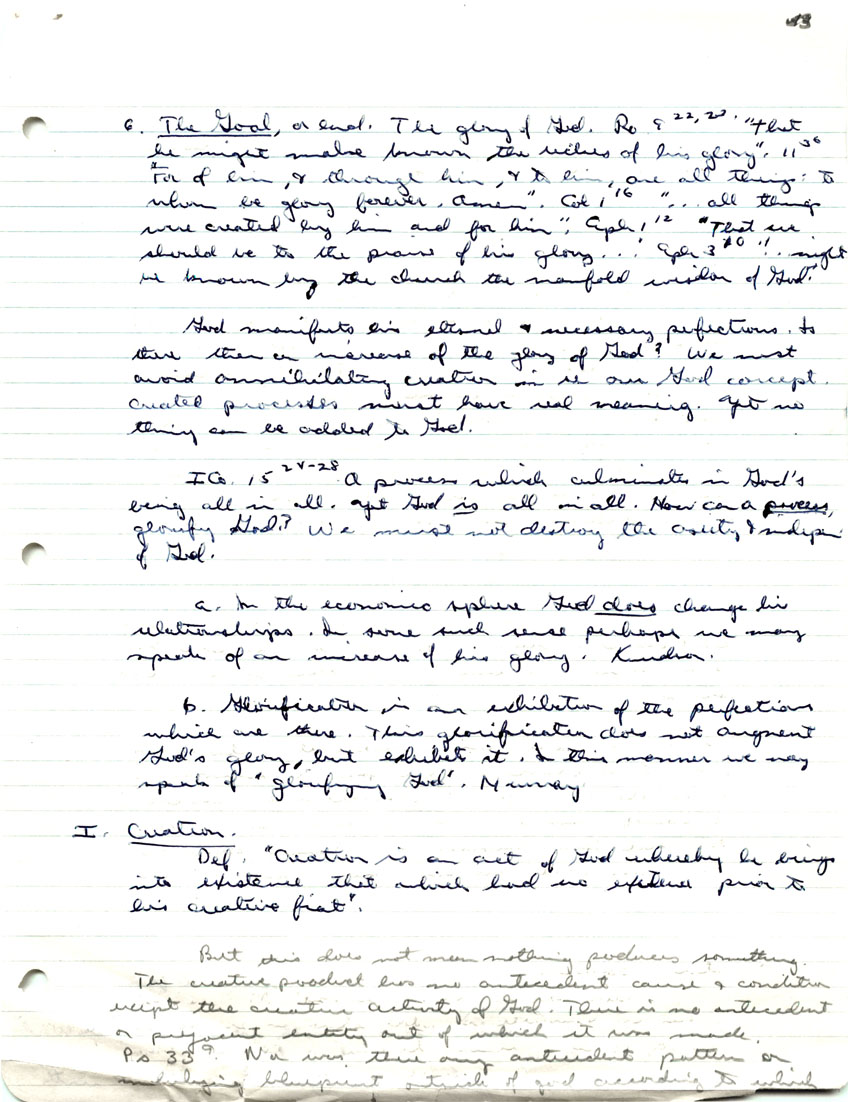 43
6. The Goal, or end. The glory of God. Ro 9 22,23. "that
he might make known the riches of his glory". 11 36
"For of him, & through him, & to him, are all things: to
whom be glory forever. Amen". Col 1 16 "... all things
were created by him and for him"; Eph 1 12 "That we
should be to the praise of his glory..." Eph 3 10 "... might
be known by the church the manifold wisdom of God."
God manifests his eternal & necessary perfections. Is
there then an increase of the glory of God? We must
avoid annihilating creation in our God concept.
Created processes must have real meaning. Yet no
thing can be added to God.
I Co. 15 24-28 A process which culminates in God's
being all in all. Yet God is all in all. How can a process
glorify God? We must not destroy the aseity & indepen
of God.
a. In the economic sphere God does change his
relationships. In some such sense perhaps we may
speak of an increase of his glory. Knudson.
b. Glorification is an exhibition of the perfections
which are there. This glorification does not augment
God's glory, but exhibits it. In this manner we may
speak of "glorifying God". Murray
I. Creation.
Def. "Creation is an act of God whereby he brings
into existence that which had no existence prior to
his creative fiat".
But this does not mean nothing produces something.
The creative product has no antecedent cause or condition
except the creative activity of God. There is no antecedent
or prejacent entity out of which it was made.
Ps 33 9. Nor was there any antecedent pattern or
underlying blueprint outside of God according to which